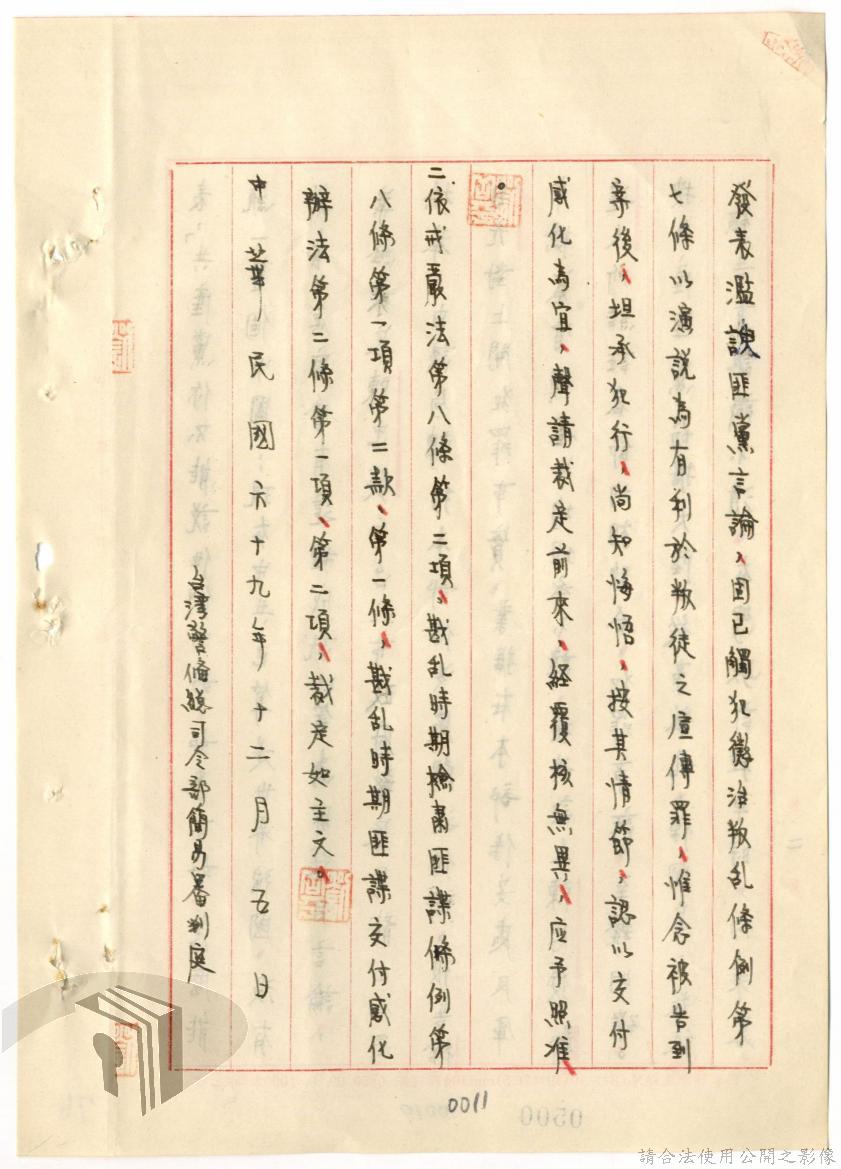 發表濫諛匪黨言論、固已觸犯懲治叛乱條例第
七條以演說為有利於叛徒之宣傳罪、惟念被告到
案後、坦承犯行、尚知悔悟、按其情節、認以交付
感化為宜、聲請裁定前來、經覆核無異、应予照准、
二依戒嚴法第八條第二項、戡乱時期檢肅匪諜條例第
八條第一項第二款、第一條、戡乱時期匪諜交付感化
辦法第二條第一項、第二項、裁定如主文。
中華民國六十九年十二月五日
台湾警備總司令部簡易審判庭
0011
0500
請合法使用公開之影像